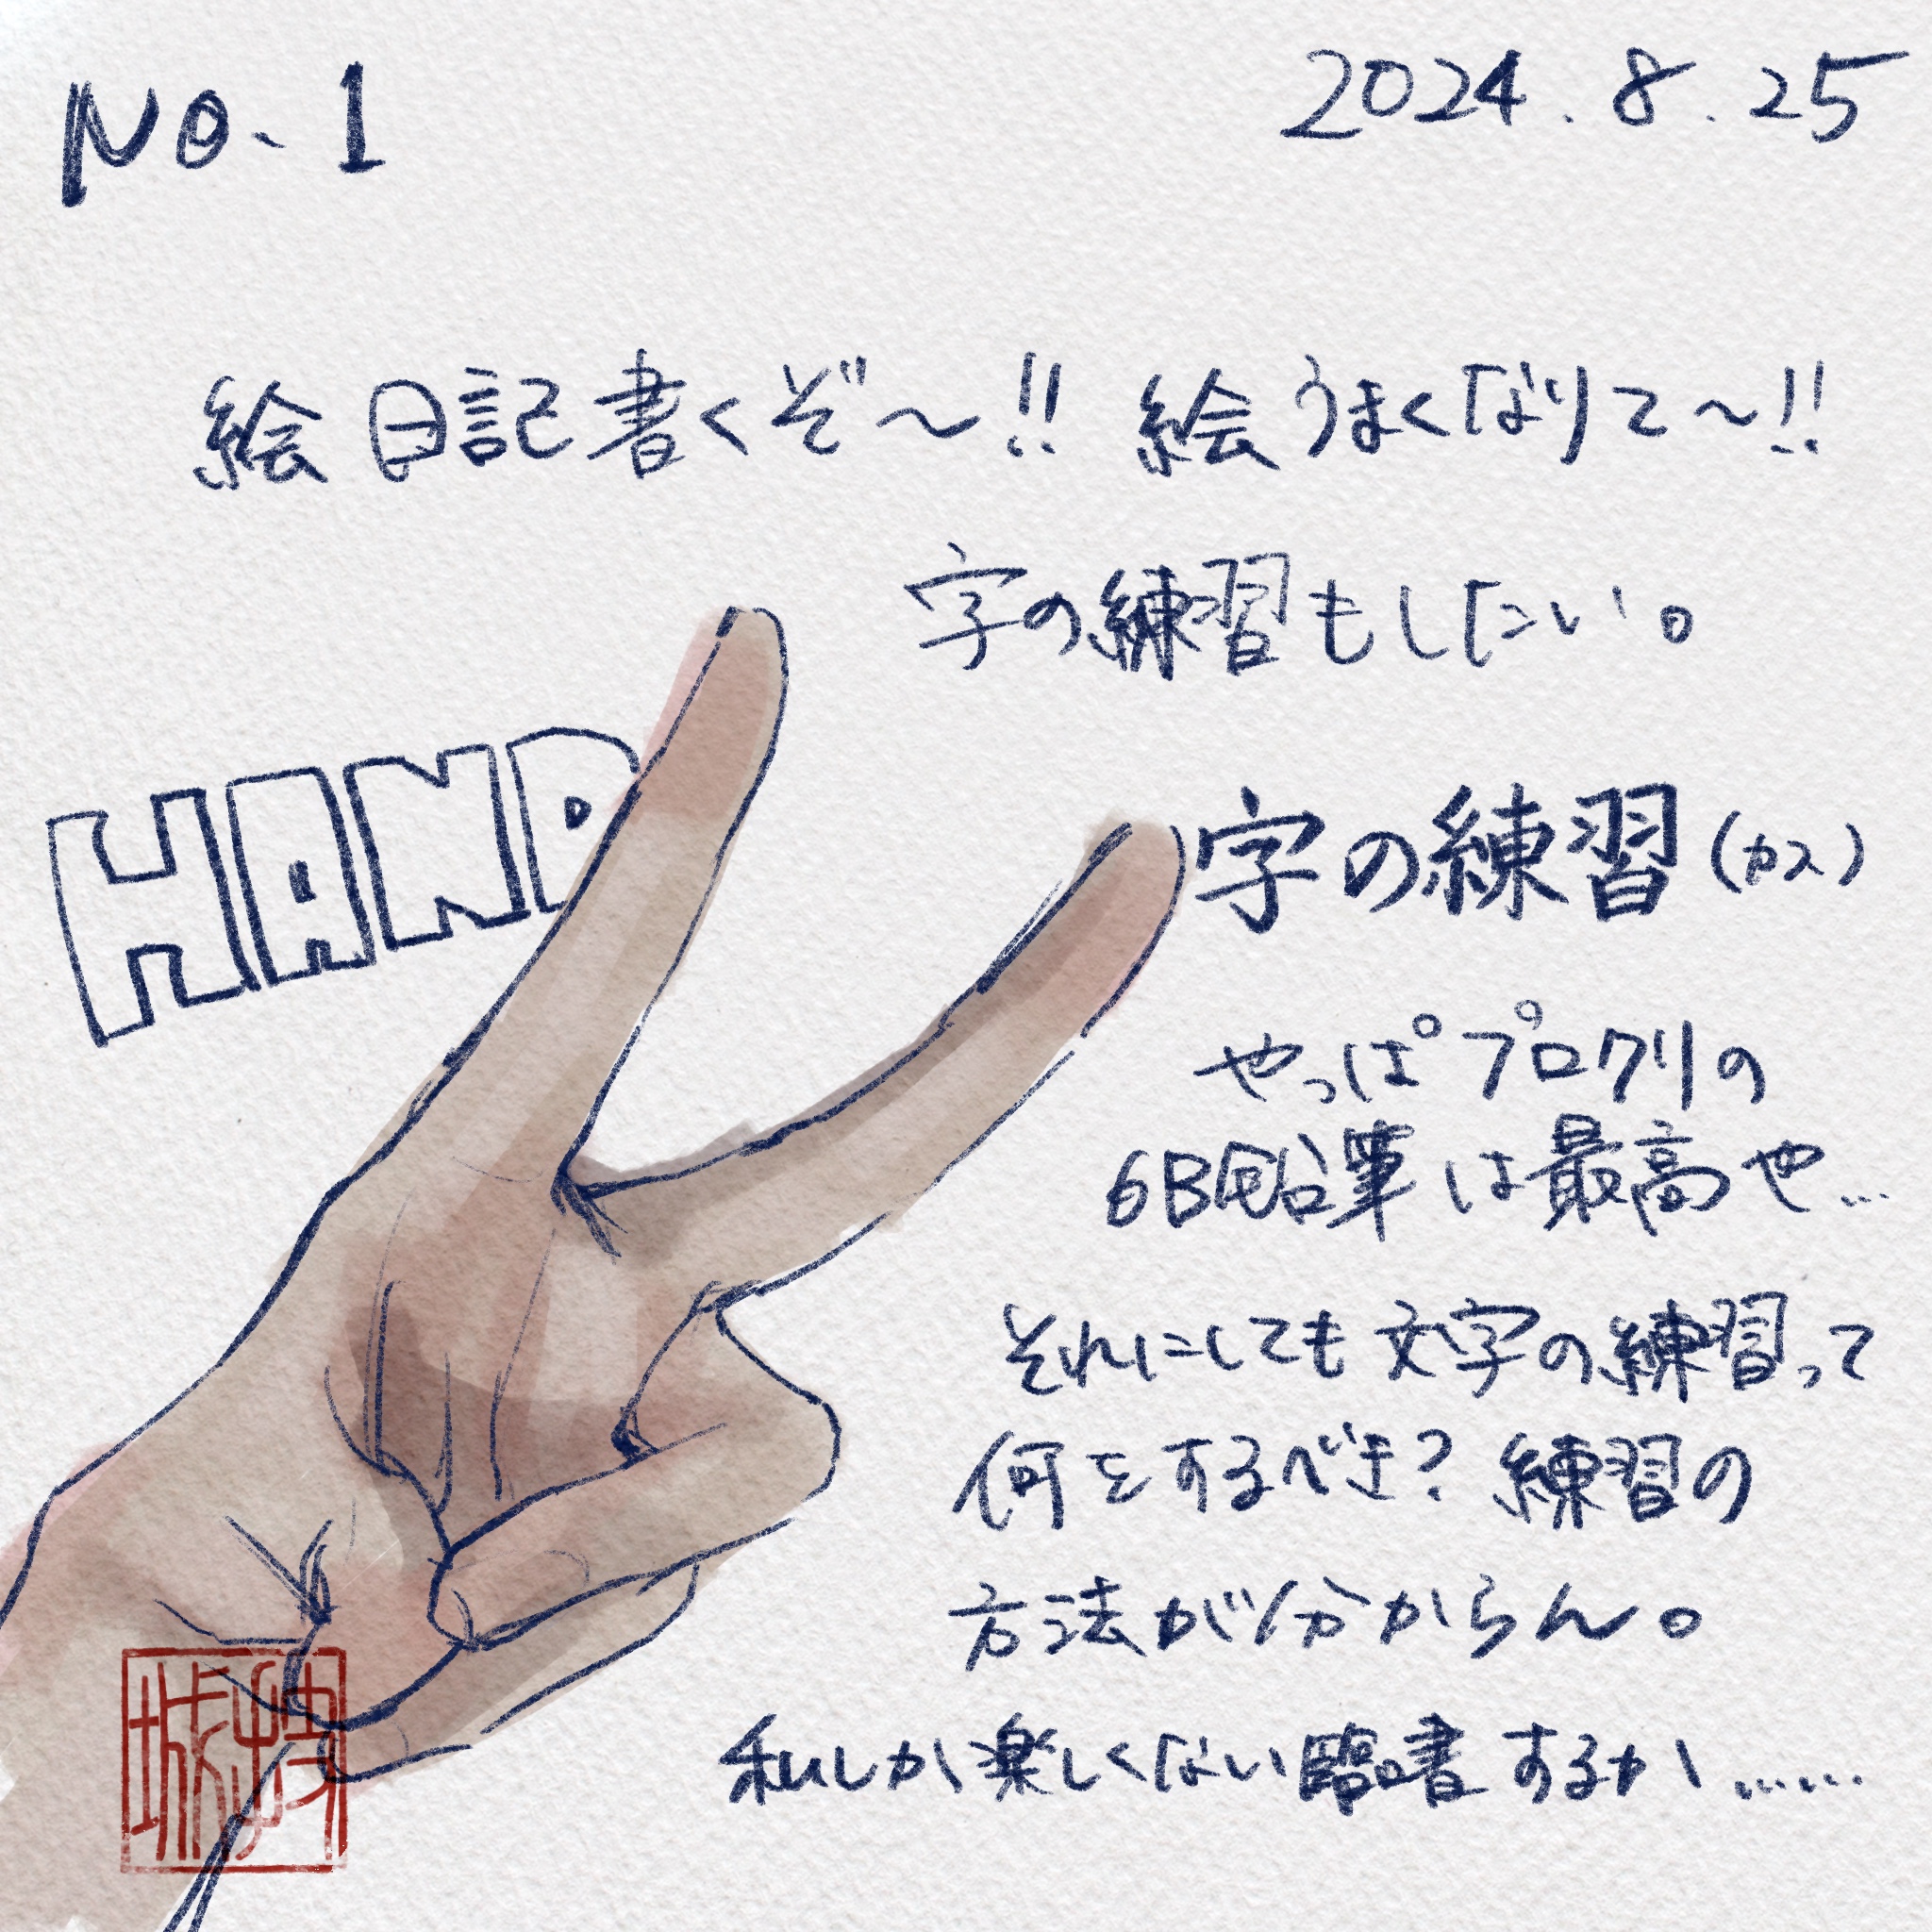 No.1
2024.8.25
絵日記書くぞ〜!! 絵うまくなりて〜!!
字の練習もしたい。
HAND
字の練習(カス)
やっぱプロクリの
6B鉛筆は最高や…
それにしても文字の練習って
何をするべき?練習の
方法が分からん。
私しか楽しくない臨書するか……